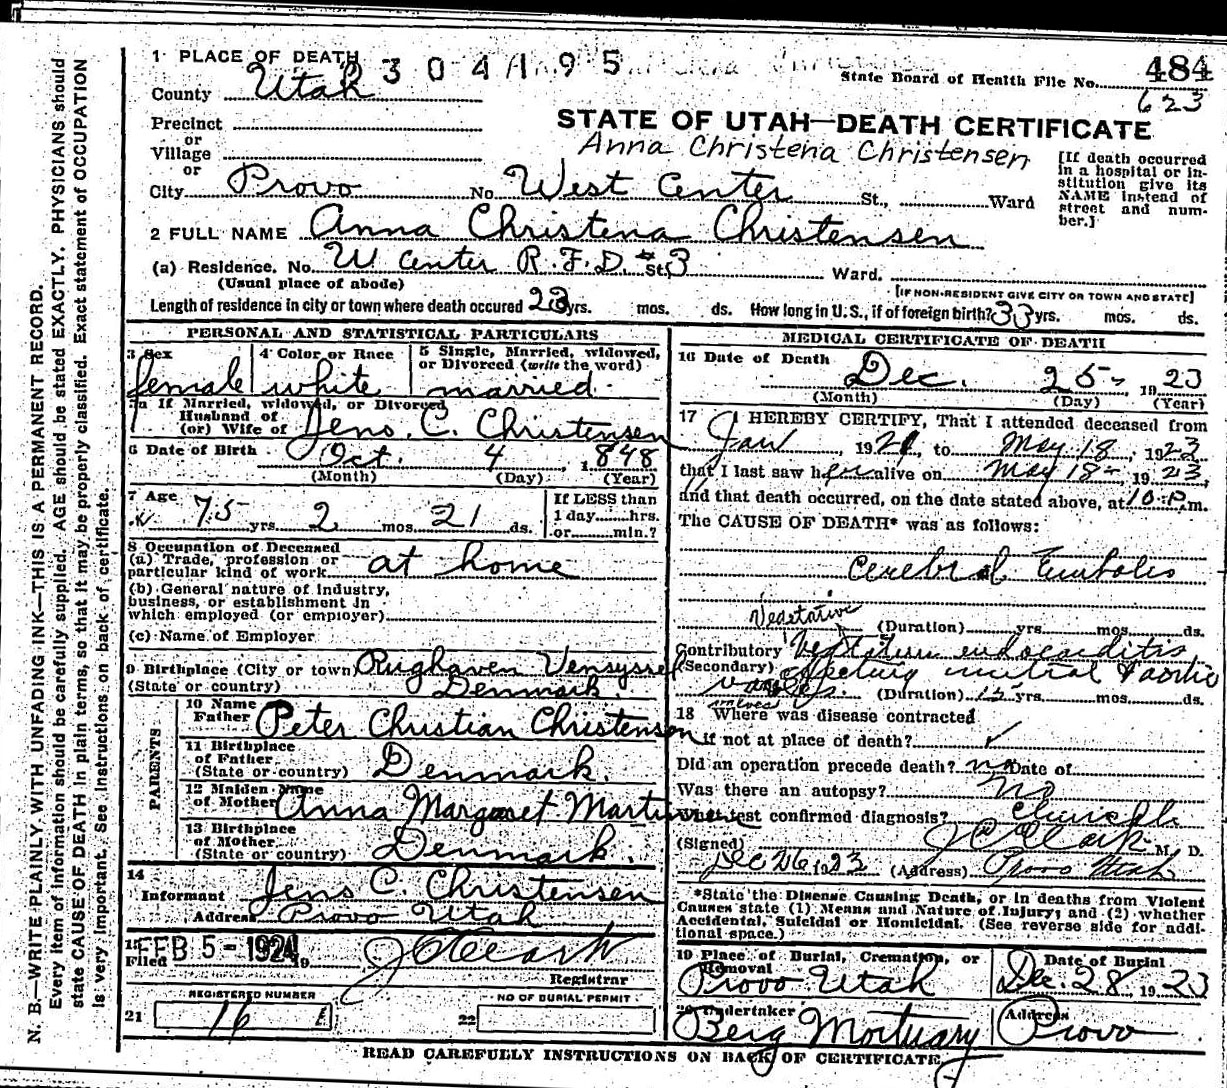 1 PLACE OF DEATH 304195
State Board of Health File No. 484
623
County Utah
STATE OF UTAH—DEATH CERTIFICATE
Anna Christena Christensen
Precinct
or
Village
or
City Provo No. West Center St., Ward
[If death occurred in a hospital or institution give its NAME instead of street and number.]
2 FULL NAME Anna Christena Christensen
(a) Residence. No. W Center R.F.D. #3 St., Ward.
(Usual place of abode) [IF NON-RESIDENT GIVE CITY OR TOWN AND STATE]
Length of residence in city or town where death occured 23 yrs. mos. ds. How long in U. S., if of foreign birth? 33 yrs. mos. ds.
PERSONAL AND STATISTICAL PARTICULARS
3 Sex female
4 Color or Race white
5 Single, Married, widowed, or Divorced (write the word) married
5a If Married, widowed, or Divorced
Husband of
(or) Wife of Jens. C. Christensen
6 Date of Birth Oct. 4, 1848
(Month) (Day) (Year)
7 Age 75 yrs. 2 mos. 21 ds.
If LESS than 1 day hrs. or min.?
8 Occupation of Deceased
(a) Trade, profession or
particular kind of work at home
(b) General nature of industry,
business, or establishment in
which employed (or employer)
(c) Name of Employer
9 Birthplace (City or town) Vensyssel
(State or country) Denmark.
PARENTS
10 Name of Father Peter Christian Christensen
11 Birthplace
of Father
(State or country) Denmark.
12 Maiden Name
of Mother Anna Margaret
13 Birthplace
of Mother
(State or country) Denmark.
14
Informant Jens C. Christensen
Address Provo Utah
15
Filed FEB 5 - 1924 19 J C Clark
Registrar
REGISTERED NUMBER
21 16
NO OF BURIAL PERMIT
22
MEDICAL CERTIFICATE OF DEATH
16 Date of Death
Dec. 25, 1923
(Month) (Day) (Year)
17 I HEREBY CERTIFY, That I attended deceased from
Jan 1921, to May 18, 1923
that I last saw her alive on May 18 1923,
and that death occurred, on the date stated above, at 10 P.m.
The CAUSE OF DEATH* was as follows:
Cerebral Embolis
Vegetative
(Duration) yrs. mos. ds.
Contributory Vegtative endocarditis
(Secondary) effecting mitral & aortic
valves
(Duration) 12 yrs. mos. ds.
18 Where was disease contracted
if not at place of death?
Did an operation precede death? no Date of
Was there an autopsy? no
What test confirmed diagnosis?
(Signed) J C Clark M. D.
Dec 26 1923 (Address) Provo Utah
*State the Disease Causing Death, or in deaths from Violent
Causes state (1) Means and Nature of Injury; and (2) whether
Accidental, Suicidal or Homicidal. (See reverse side for addi-
tional space.)
19 Place of Burial, Cremation, or Removal
Provo Utah
Date of Burial
Dec. 28, 1923
20 Undertaker
Berg Mortuary
Address
Provo
READ CAREFULLY INSTRUCTIONS ON BACK OF CERTIFICATE
N. B.—WRITE PLAINLY, WITH UNFADING INK—THIS IS A PERMANENT RECORD.
Every item of information should be carefully supplied. AGE should be stated EXACTLY. PHYSICIANS should
state CAUSE OF DEATH in plain terms, so that it may be properly classified. Exact statement of OCCUPATION
is very important. See instructions on back of certificate.